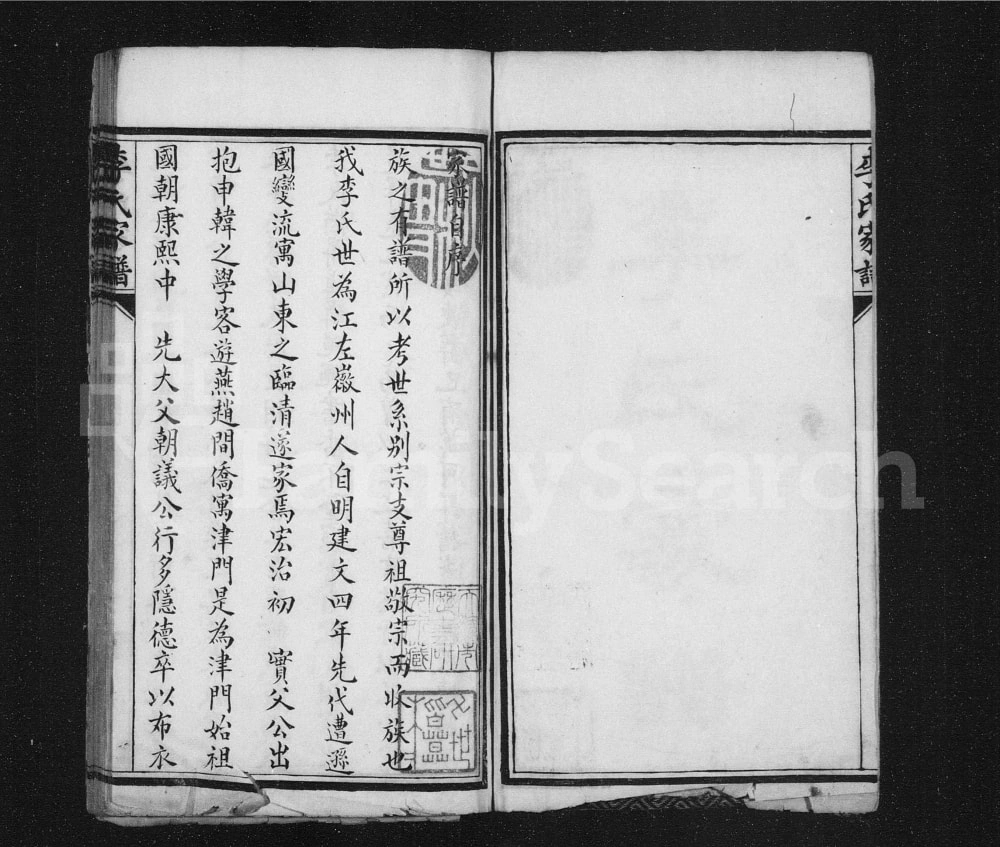 李氏家譜
家譜自序
族之有譜所以考世系别宗支尊祖敬宗而收族也
我李氏世為江左徽州人自明建文四年先代遭遜
國變流寓山東之臨清遂家焉宏治初 實父公出
抱申韓之學客遊燕趙間僑寓津門是為津門始祖
國朝康熙中 先大父朝議公行多隱德卒以布衣
李氏家譜